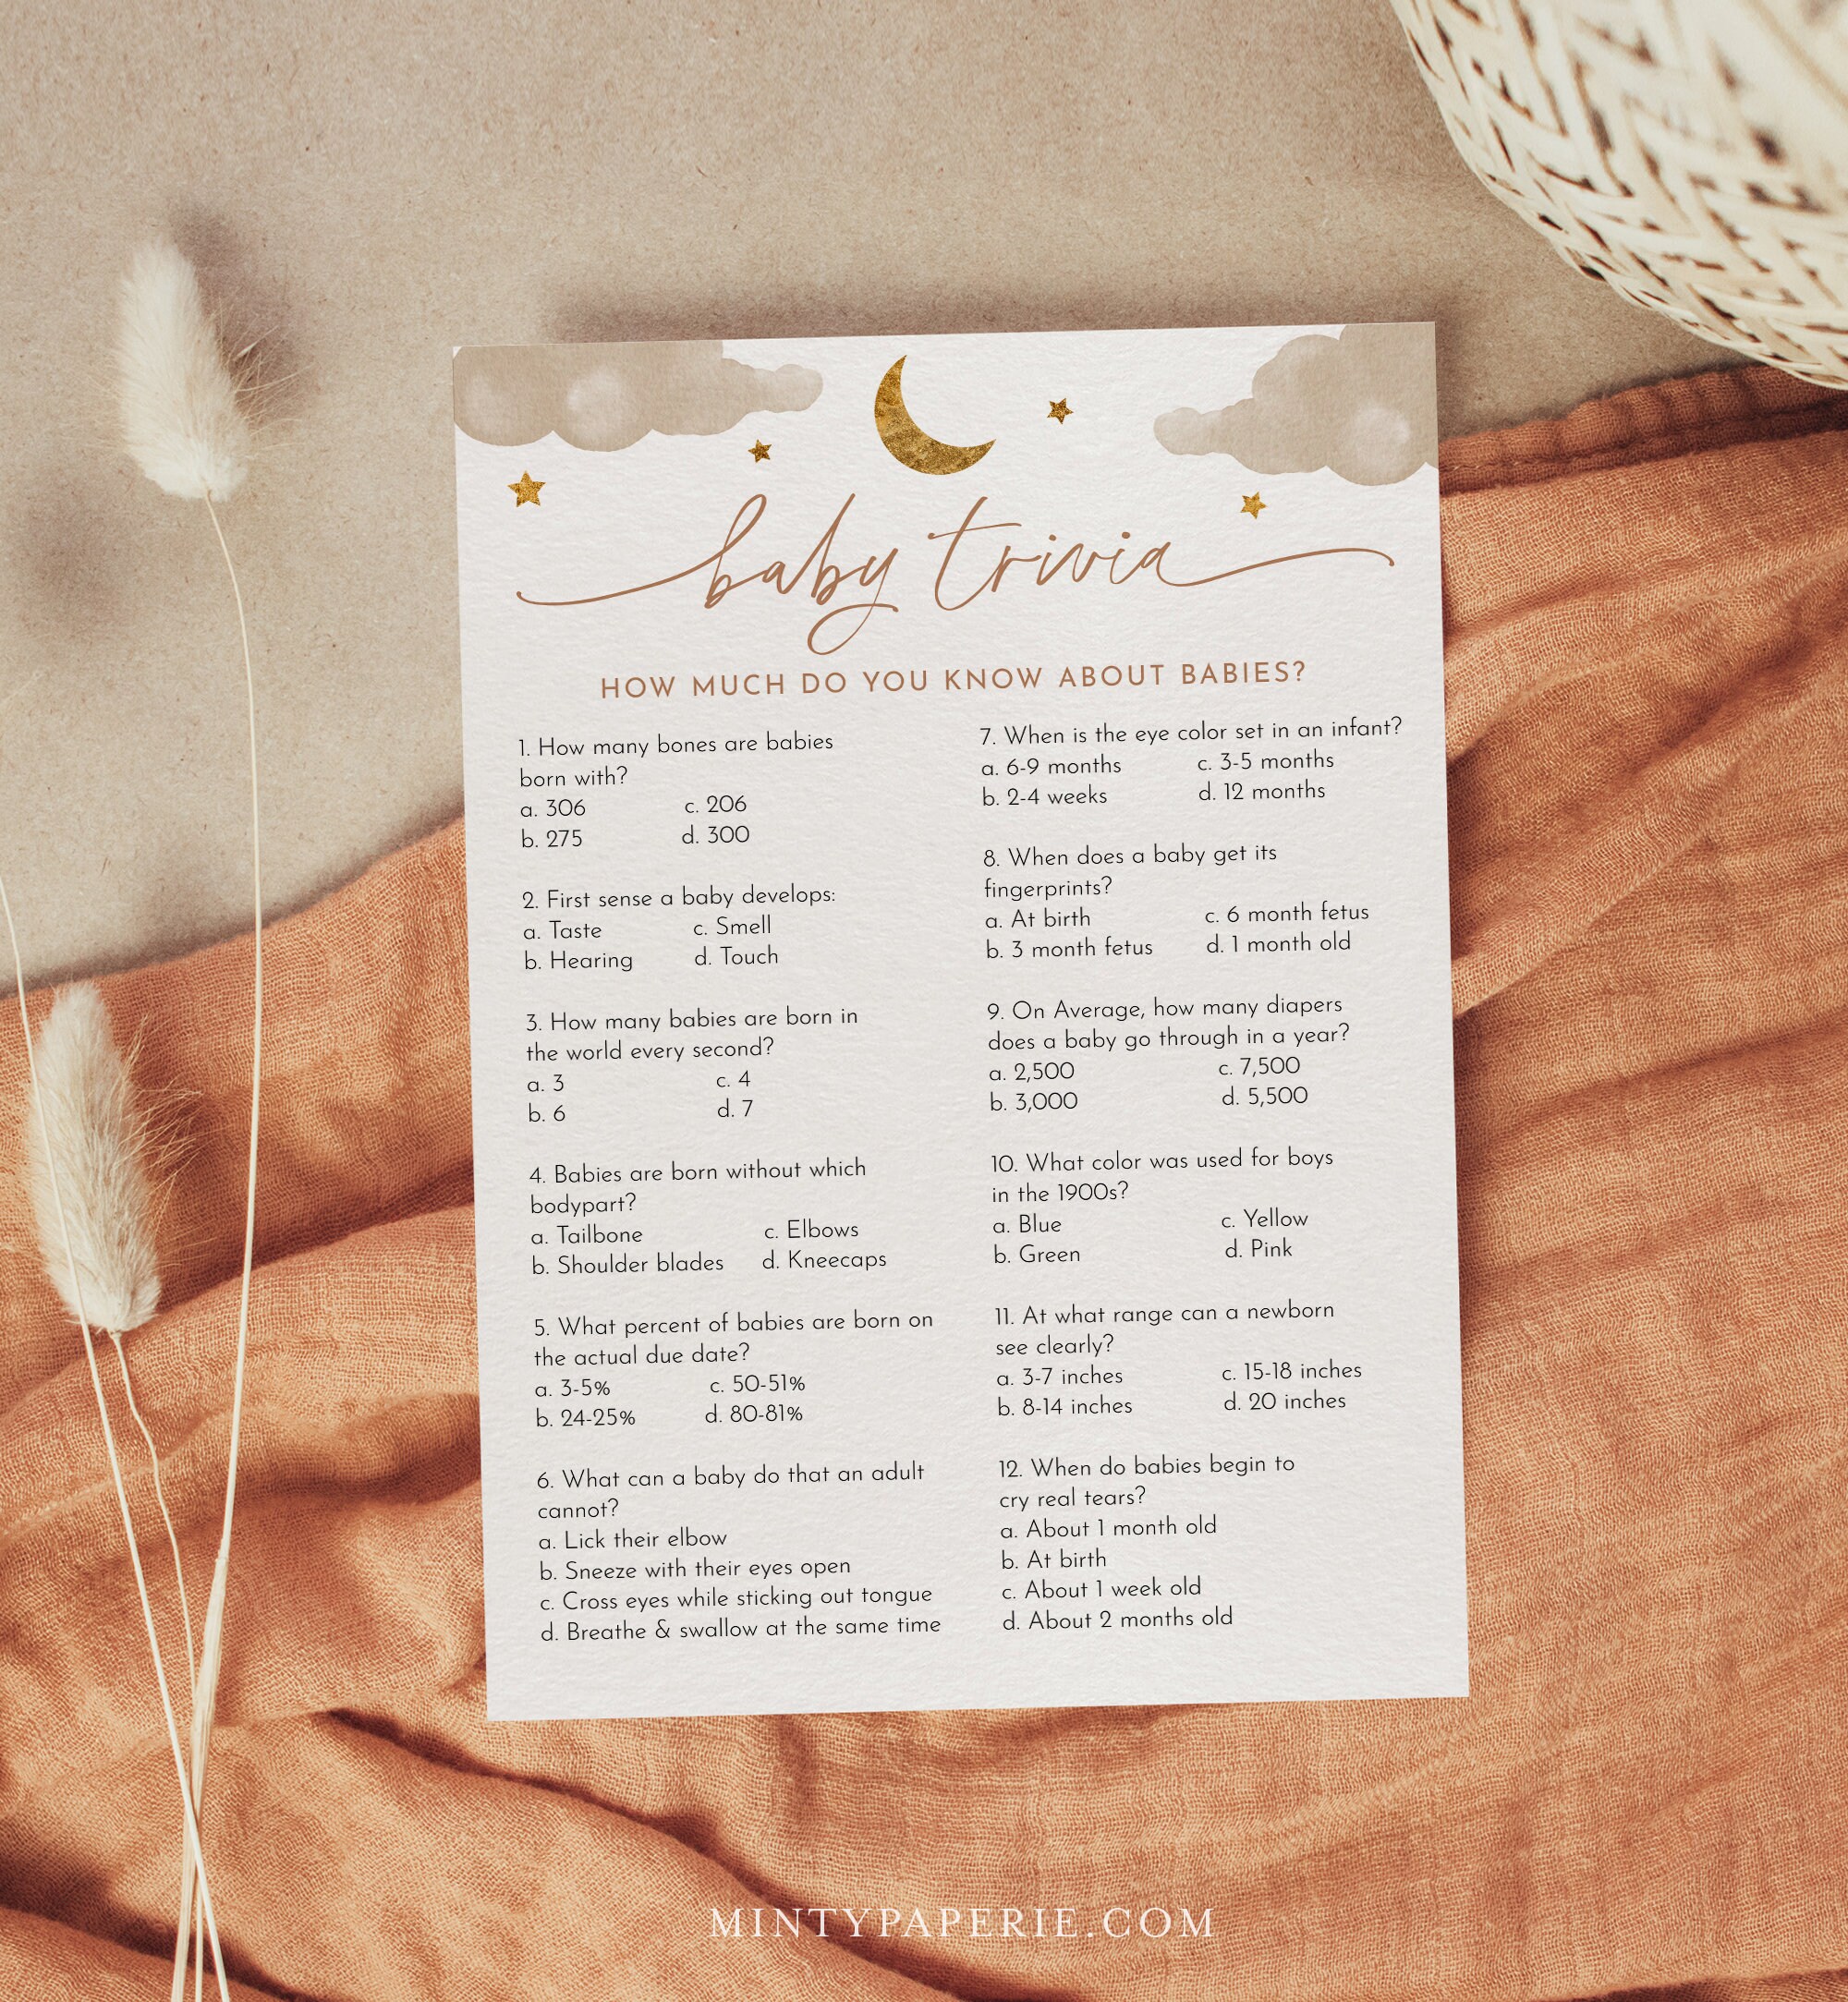 baby trivia
HOW MUCH DO YOU KNOW ABOUT BABIES?
1. How many bones are babies
born with?
a. 306 c. 206
b. 275 d. 300
2. First sense a baby develops:
a. Taste c. Smell
b. Hearing d. Touch
3. How many babies are born in
the world every second?
a. 3 c. 4
b. 6 d. 7
4. Babies are born without which
bodypart?
a. Tailbone c. Elbows
b. Shoulder blades d. Kneecaps
5. What percent of babies are born on
the actual due date?
a. 3-5% c. 50-51%
b. 24-25% d. 80-81%
6. What can a baby do that an adult
cannot?
a. Lick their elbow
b. Sneeze with their eyes open
c. Cross eyes while sticking out tongue
d. Breathe & swallow at the same time
7. When is the eye color set in an infant?
a. 6-9 months c. 3-5 months
b. 2-4 weeks d. 12 months
8. When does a baby get its
fingerprints?
a. At birth c. 6 month fetus
b. 3 month fetus d. 1 month old
9. On Average, how many diapers
does a baby go through in a year?
a. 2,500 c. 7,500
b. 3,000 d. 5,500
10. What color was used for boys
in the 1900s?
a. Blue c. Yellow
b. Green d. Pink
11. At what range can a newborn
see clearly?
a. 3-7 inches c. 15-18 inches
b. 8-14 inches d. 20 inches
12. When do babies begin to
cry real tears?
a. About 1 month old
b. At birth
c. About 1 week old
d. About 2 months old
MINTYPAPERIE.COM